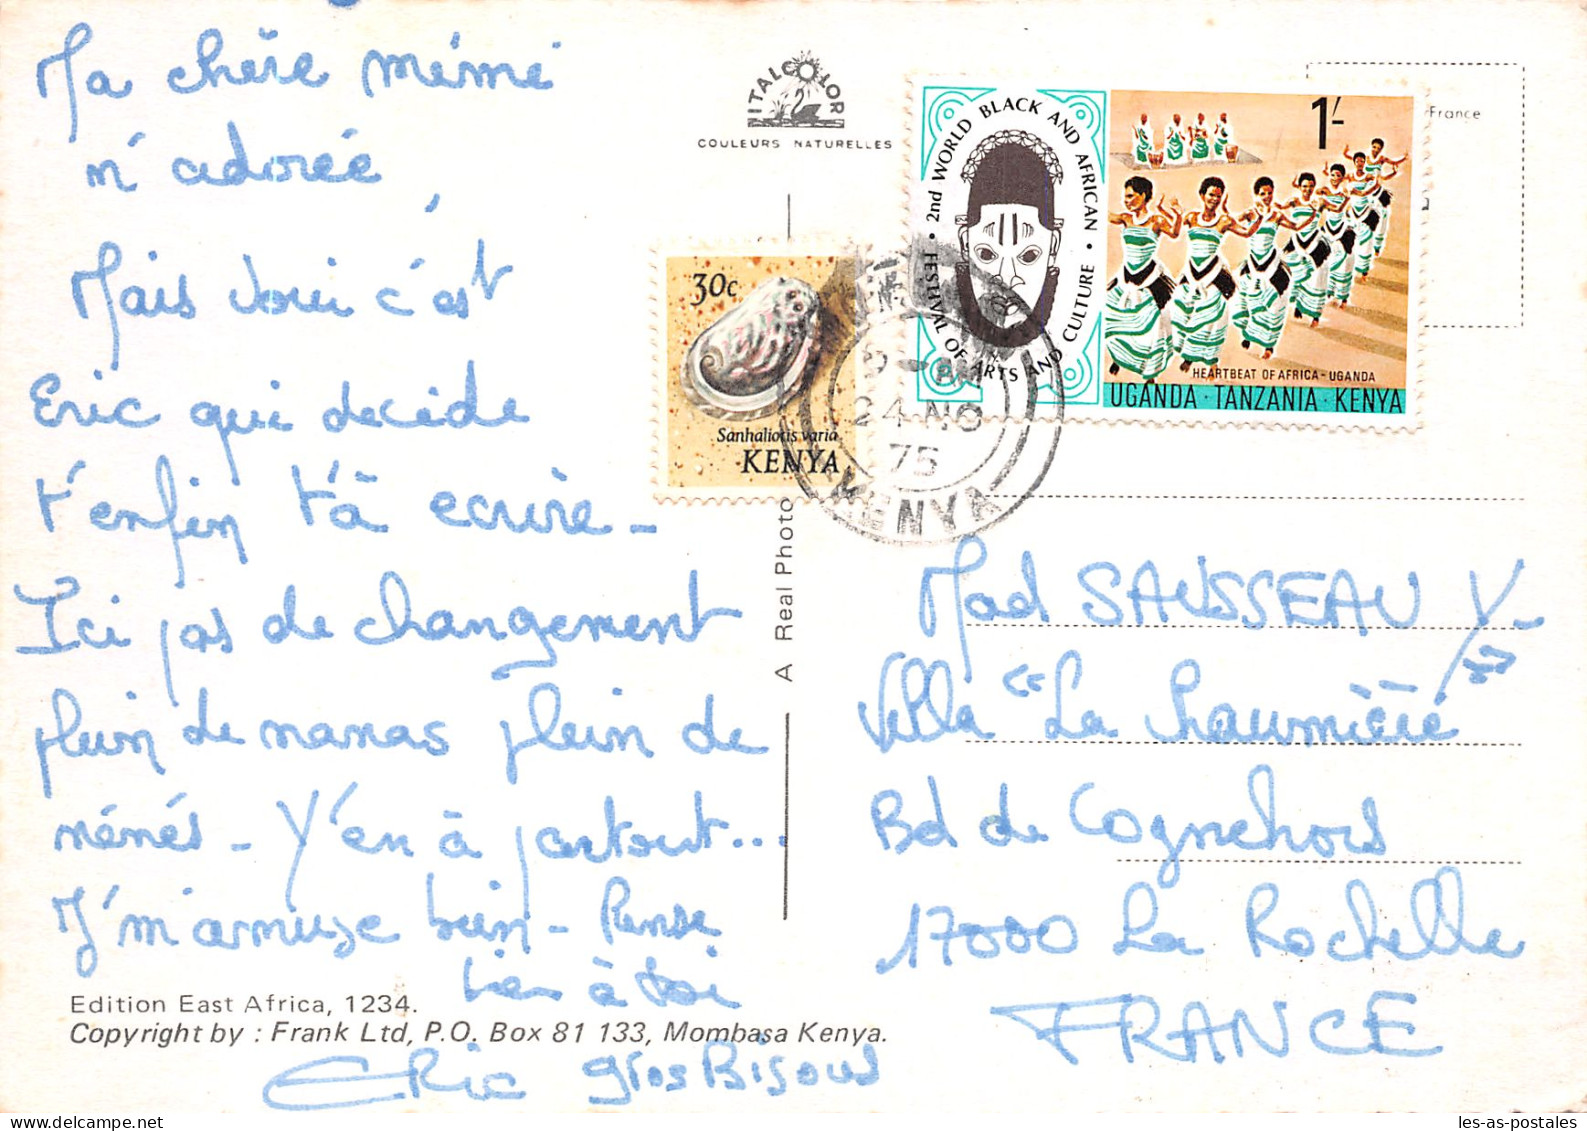 Ma chère mémé
n'adorée
Mais voui c'est
Eric qui decide
t'enfin t'à ecrire -
Ici pas de changement
plein de nanas plein de
nénés - Y'en à partout...
J'm'amuse bien - Pense
bien à toi
ERic gros Bisous
Edition East Africa, 1234.
Copyright by : Frank Ltd, P.O. Box 81 133, Mombasa Kenya.
ITALCOLOR
COULEURS NATURELLES
A Real Photo
30c
Sanhaliotis varia
KENYA
2nd WORLD BLACK AND AFRICAN
FESTIVAL OF ARTS AND CULTURE
1/-
HEARTBEAT OF AFRICA - UGANDA
UGANDA · TANZANIA · KENYA
24 NO
75
KENYA
France
Mad SAUSSEAU Y-
Villa "La Chaumière"
Bd de Cognehors
17000 La Rochelle
FRANCE
les-as-postales